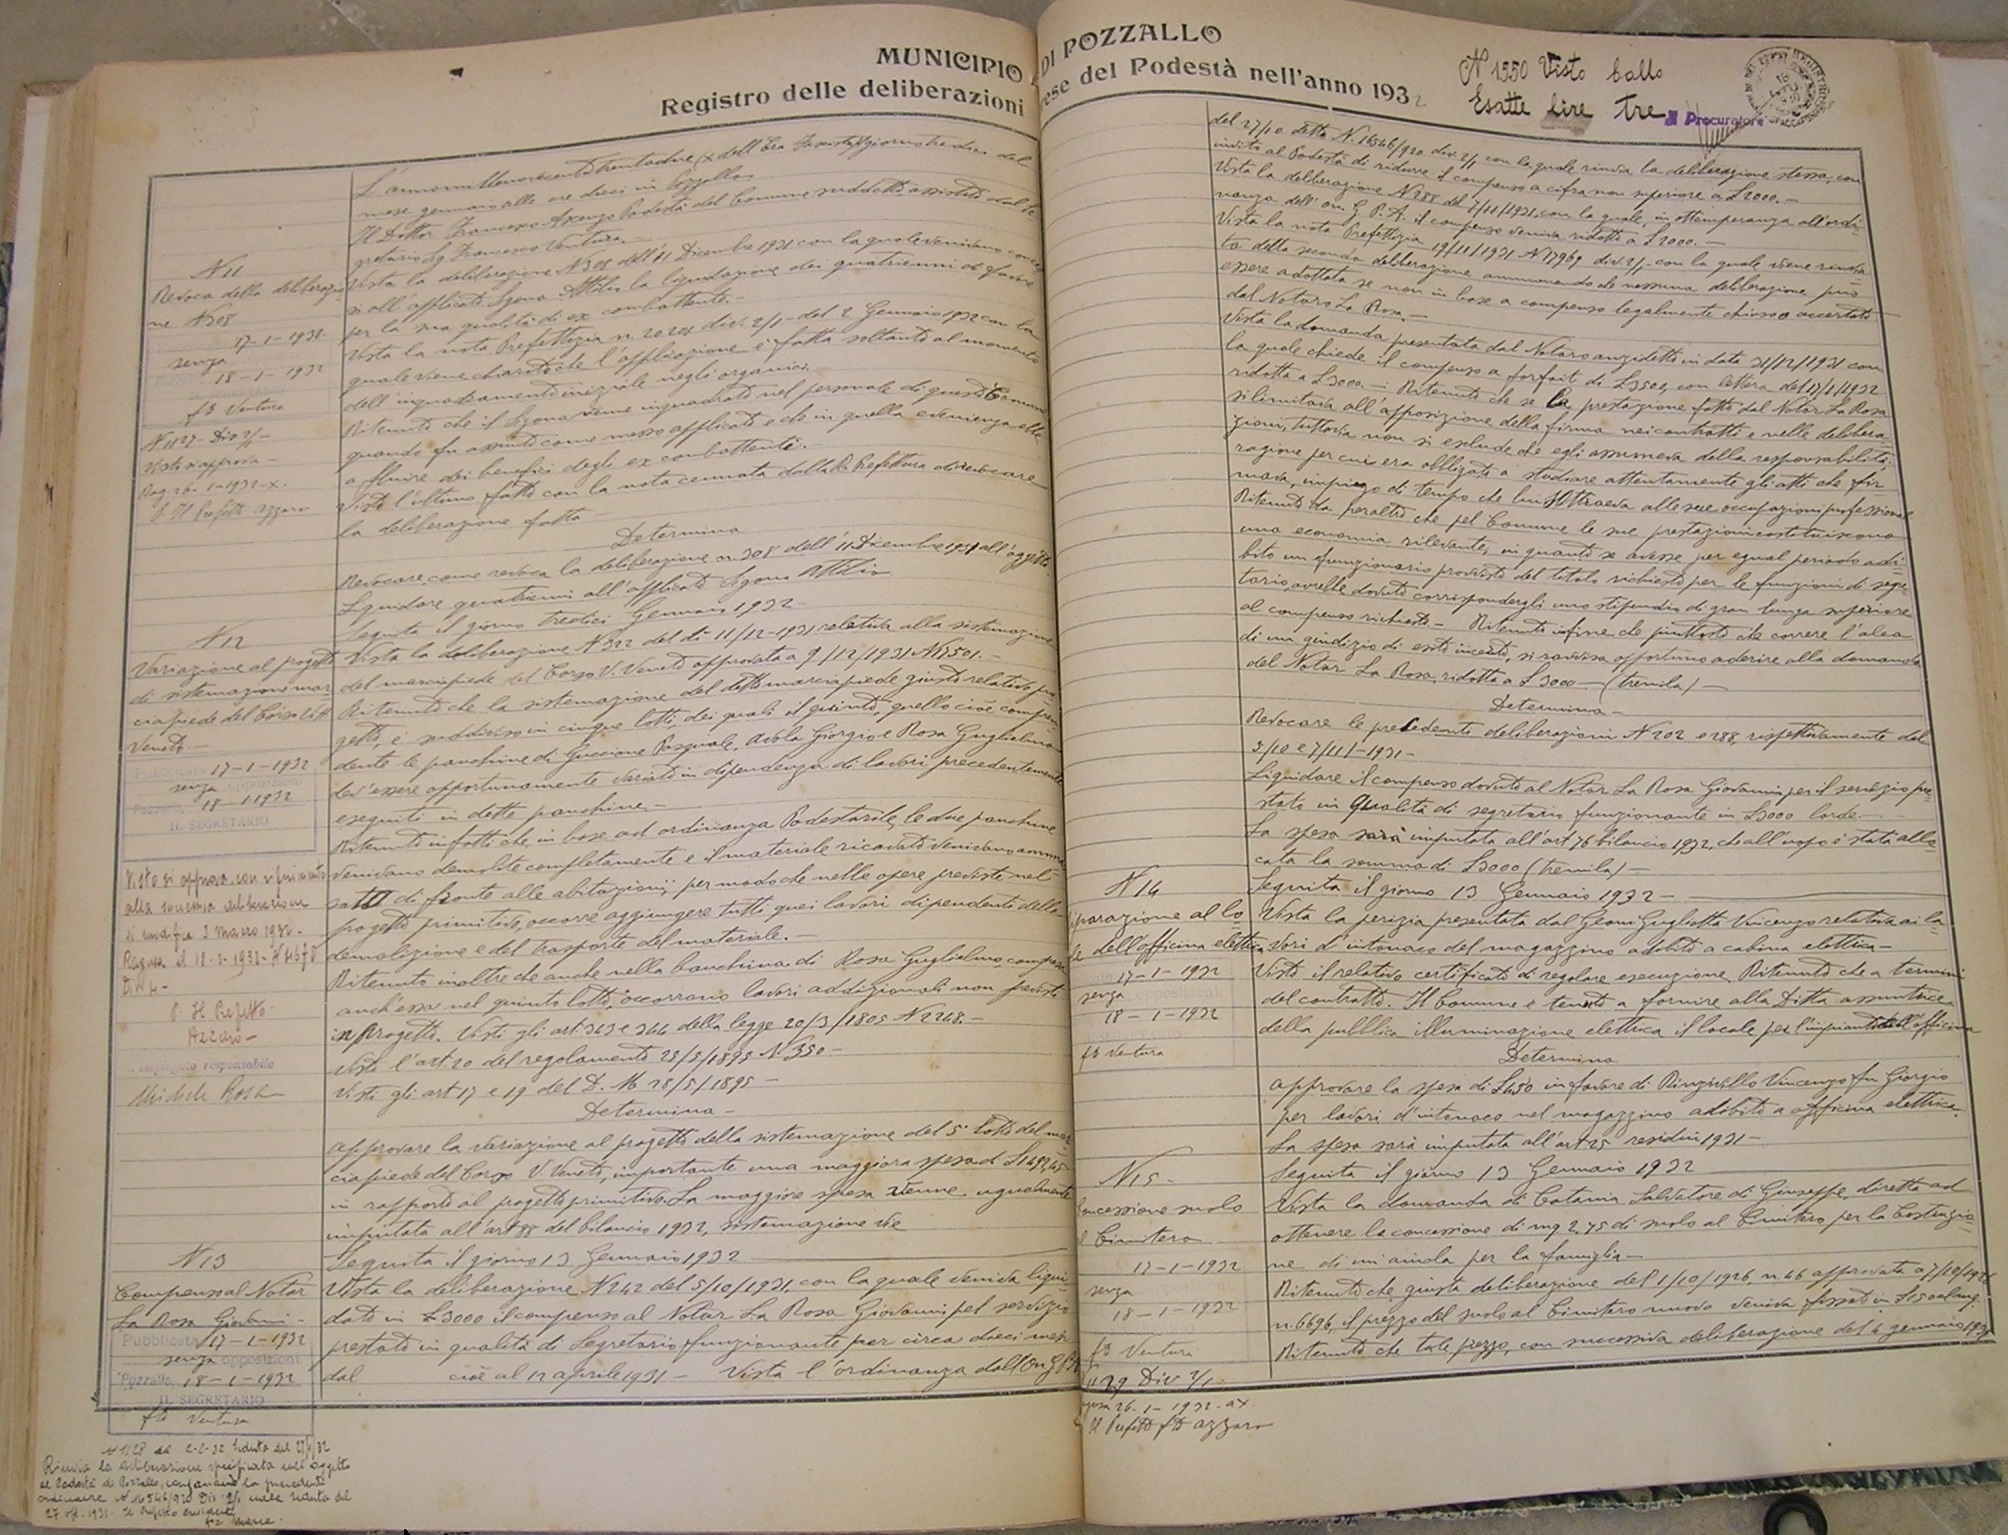 MUNICIPIO DI POZZALLO
Registro delle deliberazioni prese del Podestà nell'anno 1932
N 1550 Visto bollo
Esatte lire tre
Il Procuratore
L'anno millenovecentotrentadue, X dell'Era Fascista, il giorno tredici del
mese gennaio alle ore dieci in Pozzallo
Il Dottor Francesco Podestà del Comune suddetto assistito dal Se
gretario Sig. Francesco Ventura.
N 11
Revoca della deliberazio
ne N 308
17-1-1932
senza
18-1-1932
IL SEGRETARIO
f° Ventura
N 1127 - Div 2/1 -
Visto si approva -
Rag. 26-1-1932-X.
P. Il Prefetto Azzaro
Vista la deliberazione N 308 dell'11 Dicembre 1931 con la quale venivano conces
si all'applicato Attilio la liquidazione dei quatrienni a favore
per la sua qualità di ex combattente. -
Vista la nota Prefettizia n. div. 2/1 - del 2 Gennaio 1932 con la
quale viene chiarito che l'applicazione è fatta soltanto al momento
dell'inquadramento iniziale negli organici. -
Ritenuto che il venne inquadrato nel personale di questo Comune
quando fu assunto come messo applicato e che in quella evenienza ebbe
a fluire dei benefici degli ex combattenti. -
Visto l'ultimo fatto con la nota cennata dalla R. Prefettura di revocare
la deliberazione fatta
Determina
Revocare, come revoca la deliberazione n. 308 dell'11 Dicembre 1931 all'oggetto:
Liquidare quatrienni all'applicato Attilio
Seguita il giorno tredici Gennaio 1932 -
N 12
Variazione al progetto
di sistemazione mar
ciapiede del Corso Vitt
Veneto -
Pubblicata 17-1-1932
senza opposizioni
Pozzallo, 18-1-1932
IL SEGRETARIO
Visto si approva con riferimento
alla successiva deliberazione
3 marzo 1932 -
P. Il Prefetto
Azzaro -
L'impiegato responsabile
Michele Rosa
Vista la deliberazione N 322 del dì 11/12-1931 relativa alla sistemazione
del marciapiede del Corso V. Veneto approvata a 9/12/1931 N 17501. -
Ritenuto che la sistemazione del detto marciapiede giusto relativo pro
getto, è suddiviso in cinque lotti, dei quali il quinto, quello cioè compren
dente le panchine di Guccione Pasquale, Avola Giorgio e Rosa Guglielmo
dev'essere opportunamente variato in dipendenza di lavori precedentemente
eseguiti in dette panchine. -
Ritenuto infatti che, in base ad ordinanza Podestarile, le due panchine
venivano demolite completamente e il materiale ricavato veniva ammas
sato di fronte alle abitazioni; per modo che nelle opere previste nel
progetto primitivo, occorre aggiungere tutti quei lavori dipendenti dalla
demolizione e del trasporto del materiale. -
Ritenuto inoltre che anche nella banchina di Rosa Guglielmo, compresa
anch'essa nel quinto lotto, occorrono lavori addizionali non previsti
in progetto. Visto gli art 343 e 344 della legge 20/3/1865 N 2248. -
Visto l'art 20 del regolamento 25/5/1895 N. 350 -
Visto gli art 17 e 19 del D. M. 28/5/1895 -
Determina -
Approvare la variazione al progetto della sistemazione del 5° lotto del mar
ciapiede del Corso V. Veneto, importante una maggiore spesa di L 1492,45
in rapporto al progetto primitivo. La maggiore spesa viene ugualmente
imputata all'art 88 del bilancio 1932, sistemazione vie
N 13
Compenso al Notar
La Rosa Giovanni -
Pubblicata 17-1-1932
senza opposizioni
Pozzallo, 18-1-1932
IL SEGRETARIO
f° Ventura
Seguita il giorno 13 Gennaio 1932
Vista la deliberazione N 242 del 5/10/1931, con la quale veniva liqui
dato in L 3000 il compenso al Notar La Rosa Giovanni, pel servizio
prestato in qualità di Segretario funzionante per circa dieci mesi
dal cioè al 12 aprile 1931 - Vista l'ordinanza dell'On G P A
N 1128 del 2-2-32 Seduta del 27/1/32
Rinvia la deliberazione specificata nell'oggetto
al Podestà di Pozzallo, confermando la precedente
ordinanza N 16546/930 Div 2/1 nella seduta del
27 ott. 1931.
del 27/10 detto N. 16546/930 div. 2/1 con la quale rinvia la deliberazione stessa, con
invito al Podestà di ridurre il compenso a cifra non superiore a L 2000. -
Vista la deliberazione N 288 del 7/11/1931, con la quale, in ottemperanza all'ordi
nanza dell'on. G. P. A. il compenso veniva ridotto a L 2000. -
Vista la nota Prefettizia 19/11/1931 N 17969 div. 2/1 - con la quale viene rinvia
ta detta seconda deliberazione ammonendo che nessuna deliberazione può
essere adottata se non in base a compenso legalmente chiesto o accertato
dal Notaro La Rosa. -
Vista la domanda presentata dal Notaro anzidetto in data 31/12/1931 con
la quale chiede il compenso a forfait di L 3500, con lettera del 11/1/1932
ridotta a L 3000. -: Ritenuto che se la prestazione fatta dal Notar La Rosa
si limitava all'apposizione della firma nei contratti e nelle delibera
zioni, tuttavia non si esclude che egli assumeva della responsabilità
ragione per cui era obbligato a studiare attentamente gli atti che fir
mava, impiego di tempo che lui sottraeva alle sue occupazioni professionali
Ritenuto da peraltro che pel Comune le sue prestazioni costituiscono
una economia rilevante, in quanto se avesse per egual periodo adi
bito un funzionario provvisto del titolo richiesto per le funzioni di segre
tario, avrebbe dovuto corrispondergli uno stipendio di gran lunga superiore
al compenso richiesto - Ritenuto infine che piuttosto che correre l'alea
di un giudizio di esito incerto, si ravvisa opportuno aderire alla domanda
del Notar La Rosa, ridotta a L 3000 - (tremila) -
Determina -
Revocare le precedenti deliberazioni N 202 e 288, rispettivamente del
5/10 e 7/11/-1931 -
Liquidare il compenso dovuto al Notar La Rosa Giovanni, per il servizio pre
stato in qualità di segretario funzionante in L 3000 lorde. -
La spesa sarà imputata all'art 76 bilancio 1932, che all'uopo è stata allo
cata la somma di L 3000 (tremila) -
N 14
Riparazione al lo
le dell'officina elettrica
17-1-1932
senza opposizioni
18-1-1932
f° Ventura
Seguita il giorno 13 Gennaio 1932 -
Vista la perizia presentata dal Geom Gugliotta Vincenzo relativa ai la
vori d'intonaco del magazzino adibito a cabina elettrica -
Visto il relativo certificato di regolare esecuzione. Ritenuto che a termini
del contratto. Il Comune è tenuto a fornire alla Ditta assuntrice
della pubblica illuminazione elettrica il locale per l'impianto dell'officina
Determina
Approvare la spesa di L 450 in favore di Vincenzo fu Giorgio
per lavori d'intonaco nel magazzino adibito a officina elettrica.
La spesa sarà imputata all'art 25 residui 1931 -
N 15 -
Concessione suolo
al Cimitero
17-1-1932
senza
18-1-1932
f° Ventura
1129 Div 2/1
Ragusa 26-1-1932-X
Il Prefetto f° Azzaro
Seguita il giorno 13 Gennaio 1932
Vista la domanda di Catania Salvatore di Giuseppe, diretta ad
ottenere la concessione di mq 2,75 di suolo al Cimitero per la costruzio
ne di un'aiuola per la famiglia -
Ritenuto che giusta deliberazione del 1/10/1926, n. 46 approvata a 7/10/1926
n. 6696, il prezzo del suolo al Cimitero nuovo veniva fissato in L 150 al mq.
Ritenuto che tale prezzo, con successiva deliberazione del 4 gennaio 1931